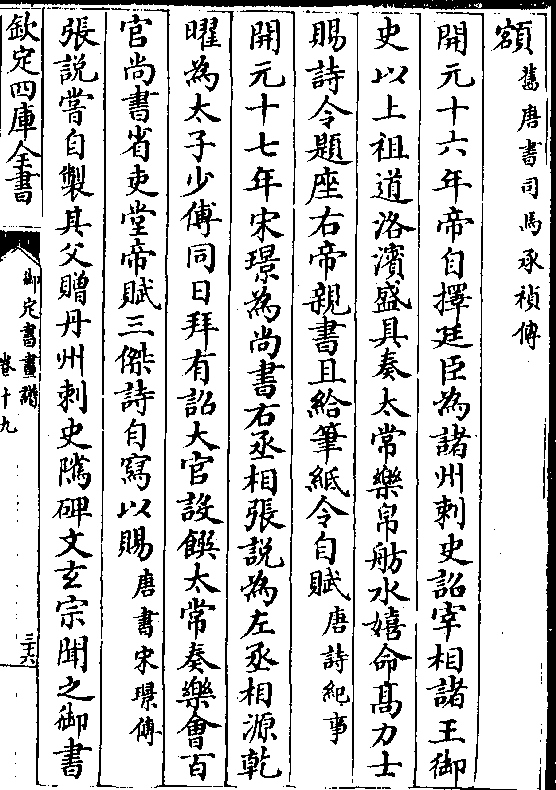 額舊唐書司馬承禎傳
開元十六年帝自擇廷臣為諸州刺史詔宰相諸王御
史以上祖道洛濱盛具奏太常樂帛舫水嬉命髙力士
賜詩令題座右帝親書且給筆紙令自賦唐詩紀事
開元十七年宋璟為尚書右丞相張説為左丞相源乾
曜為太子少傅同日拜有詔大官設饌太常奏樂會百
官尚書省吏堂帝賦三傑詩自寫以賜唐書宋璟傳
張説嘗自製其父贈丹州刺史隲碑文玄宗聞之御書
欽定四庫全書
御定書畫譜
卷十九
三六